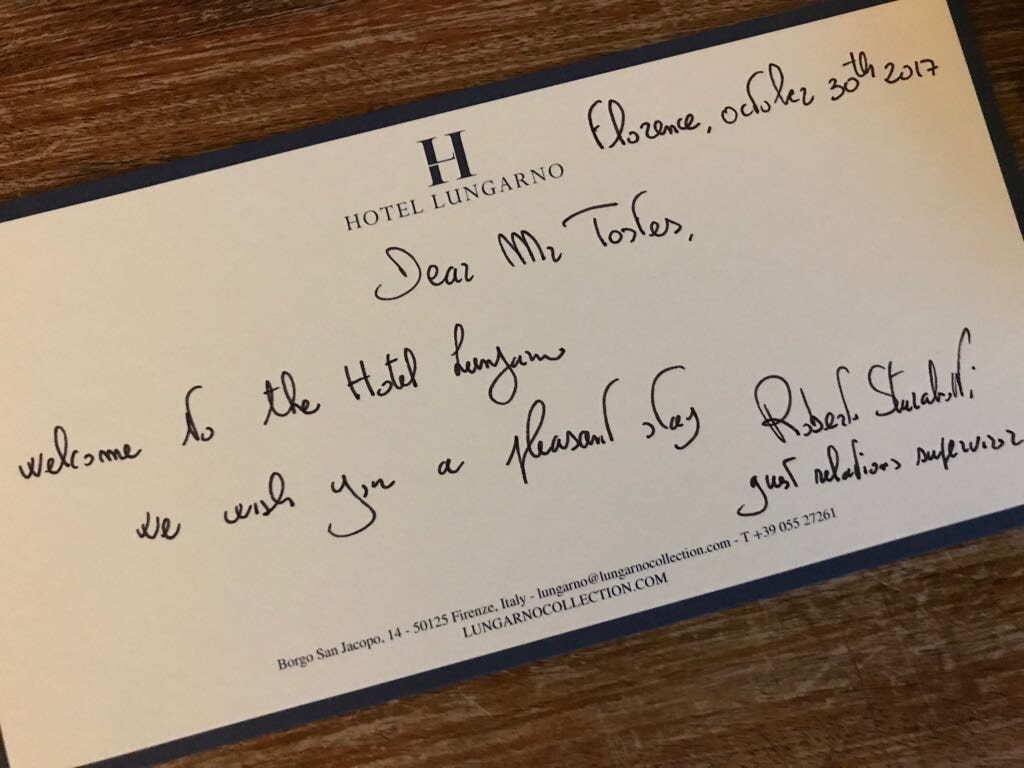 Florence, october 30th 2017
H
HOTEL LUNGARNO
Dear Mr Tostes,
welcome to the Hotel Lungarno
we wish you a pleasant stay
Roberto
gust relations supervisor
Borgo San Jacopo, 14 - 50125 Firenze, Italy - lungarno@lungarnocollection.com - T +39 055 27261
LUNGARNOCOLLECTION.COM